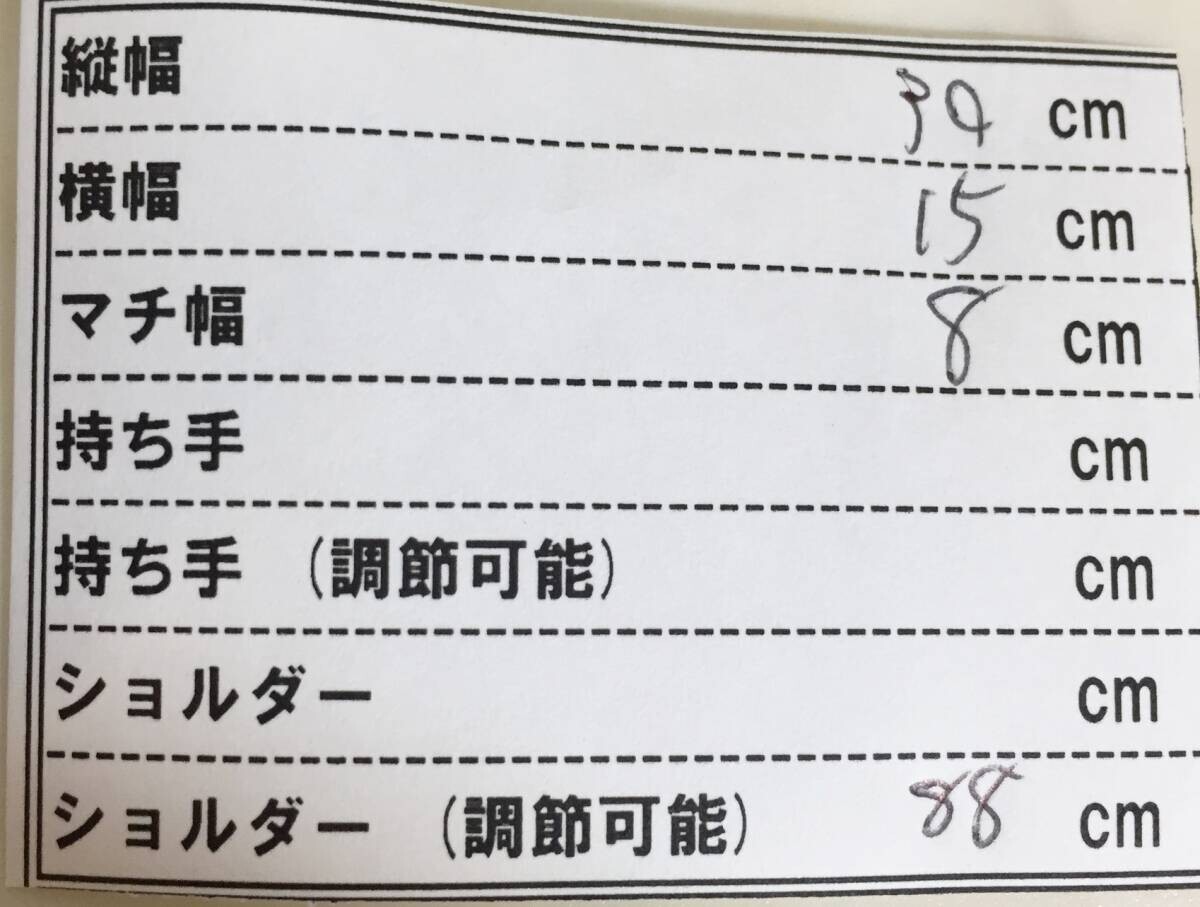 縦幅 30 cm
横幅 15 cm
マチ幅 8 cm
持ち手 cm
持ち手 (調節可能) cm
ショルダー cm
ショルダー (調節可能) 88 cm